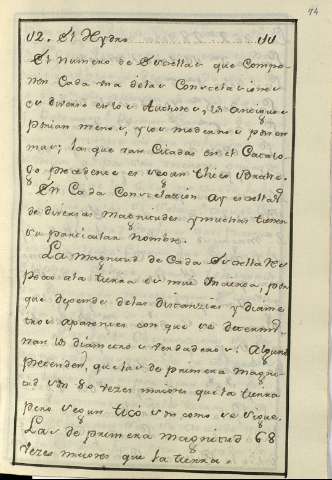 74
52. El Hydro
El Numero de Estrellas que Compo-
nen Cada una delas Constelaciones
es diverso en los Authores, los antiguos
ponian menos, y los modernos ponen
mas; las que van Citadas en el Catalo-
go precedente es segun Thico Brache.
En Cada Constelacion ay estrellas
de diversas magnitudes y muchas tienen
su particular Nombre.
La Magnitud de Cada Estrella res-
pecto ala tierra es mui incierta, por
que depende delas distanzias y diame
tros aparentes con que se determi-
nan los diametros verdaderos: Algunos
pretenden, que las de primera magni-
tud son 80 vezes maiores que la tierra
pero segun tico son como se sigue.
Las de primera magnitud 68
vezes maiores que la tierra.